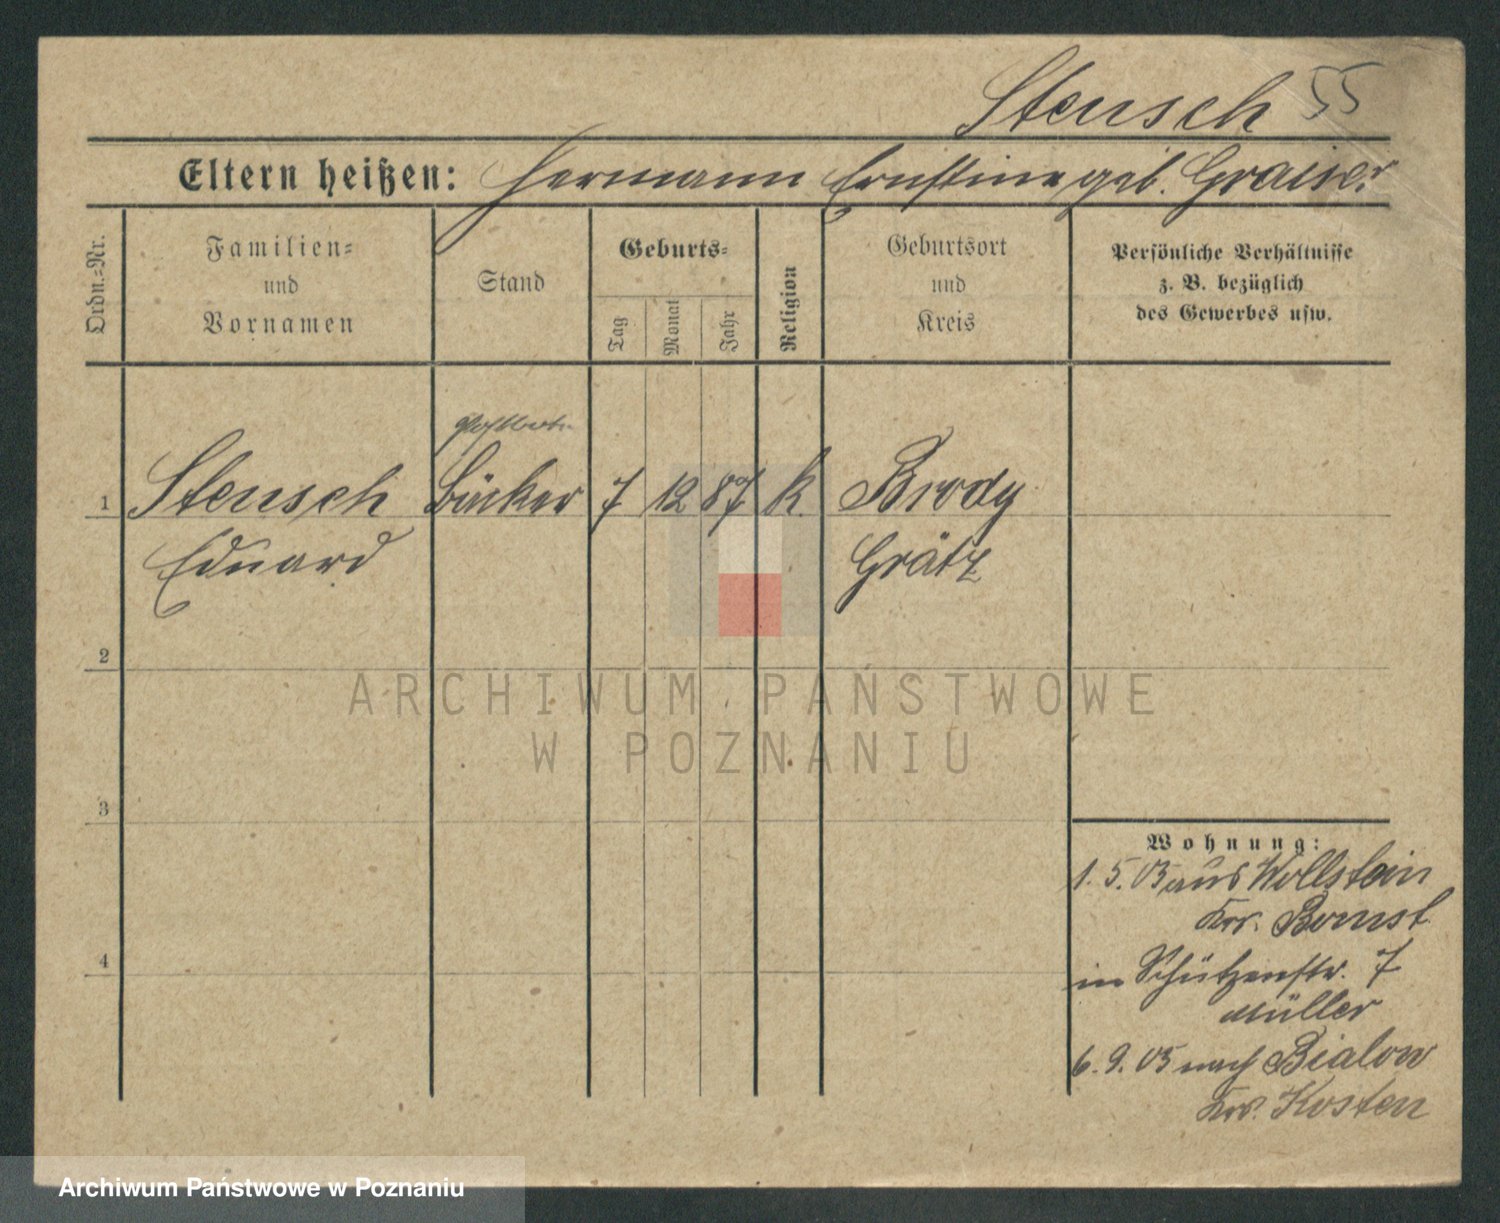 Stensch 55
Eltern heißen: Hermann Ernstine geb. Graiser
Ordn.=Nr.
Familien=
und
Vornamen
Stand
Geburts=
Tag
Monat
Jahr
Religion
Geburtsort
und
Kreis
Persönliche Verhältnisse
z. B. bezüglich
des Gewerbes usw.
1 Stensch Bäcker 7 12 87 k. Brody
Eduard Grätz
2
3
4
Wohnung:
1. 5. 05 aus Wollstein
Krs. Bomst
in Schützenstr. 7
Müller
6. 9. 05 nach Bialow
Krs. Kosten
ARCHIWUM PAŃSTWOWE
W POZNANIU
Archiwum Państwowe w Poznaniu